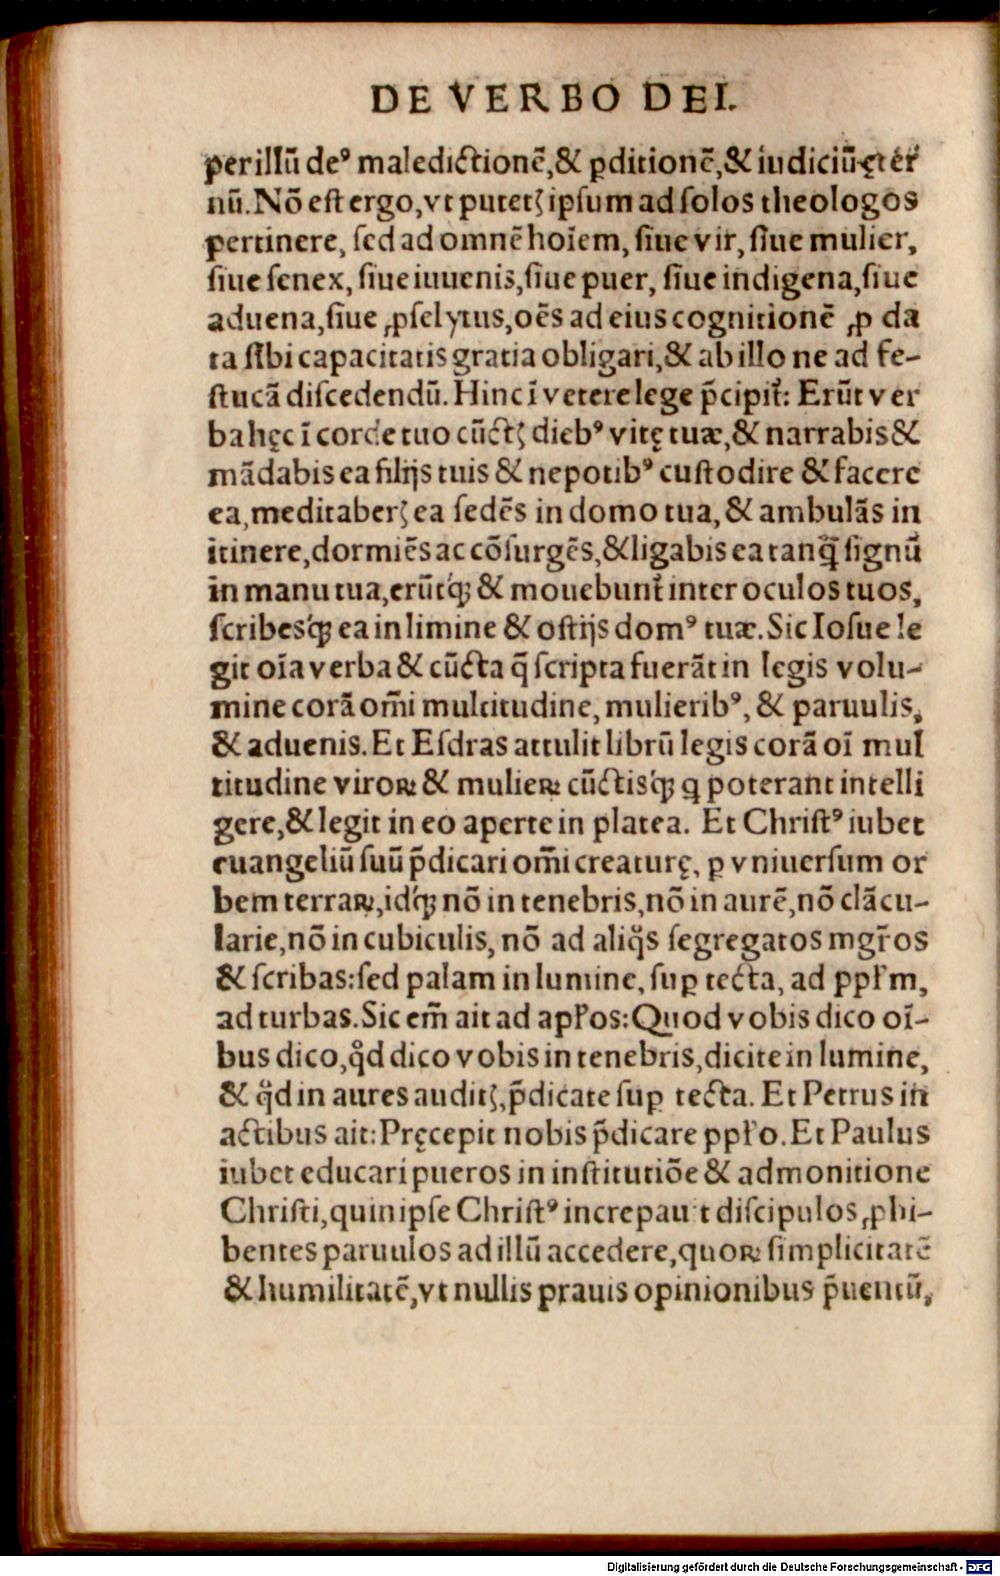 DE VERBO DEI.
perillū deꝰ maledictionē,& ꝑditionē,& iudiciū ęter
nū. Nō est ergo, vt putetꝭ ipsum ad solos theologos
pertinere, sed ad omnē hoīem, siue vir, siue mulier,
siue senex, siue iuuenis, siue puer, siue indigena, siue
aduena, siue ꝓselytus, oēs ad eius cognitionē ꝓ da
ta sibi capacitatis gratia obligari, & ab illo ne ad fe-
stucā discedendū. Hinc ī vetere lege p̄cipit᷑: Erūt ver
ba hęc ī corde tuo cūctꝭ diebꝰ vitę tuæ, & narrabis &
mādabis ea filijs tuis & nepotibꝰ custodire & facere
ea, meditaberꝭ ea sedēs in domo tua, & ambulās in
itinere, dormiēs ac cōsurgēs, & ligabis ea tanq̄ȝ signū
in manu tua, erūtq́ꝫ & mouebunt᷑ inter oculos tuos,
scribesq́ꝫ ea in limine & ostijs domꝰ tuæ. Sic Iosue le
git oīa verba & cūcta q̄ scripta fuerāt in legis volu-
mine corā om̄i multitudine, mulieribꝰ, & paruulis,
& aduenis. Et Esdras attulit librū legis corā oī mul
titudine viroꝝ & mulieꝝ cūctisq́ꝫ ꝗ poterant intelli
gere, & legit in eo aperte in platea. Et Christꝰ iubet
euangeliū suū p̄dicari om̄i creaturę, ꝑ vniuersum or
bem terraꝝ, idq́ꝫ nō in tenebris, nō in aurē, nō clācu-
larie, nō in cubiculis, nō ad aliq̊s segregatos mgr̄os
& scribas: sed palam in lumine, suꝑ tecta, ad pplm̄,
ad turbas. Sic em̄ ait ad apl̄os: Quod vobis dico oī-
bus dico, qd̊ dico vobis in tenebris, dicite in lumine,
& qd̊ in aures auditꝭ, p̄dicate suꝑ tecta. Et Petrus in
actibus ait: Pręcepit nobis p̄dicare ppl̄o. Et Paulus
iubet educari pueros in institutiōe & admonitione
Christi, quin ipse Christꝰ increpauit discipulos ꝓhi-
bentes paruulos ad illū accedere, quoꝝ simplicitatē
& humilitatē, vt nullis prauis opinionibus p̄uentū,
Digitalisierung gefördert durch die Deutsche Forschungsgemeinschaft - DFG